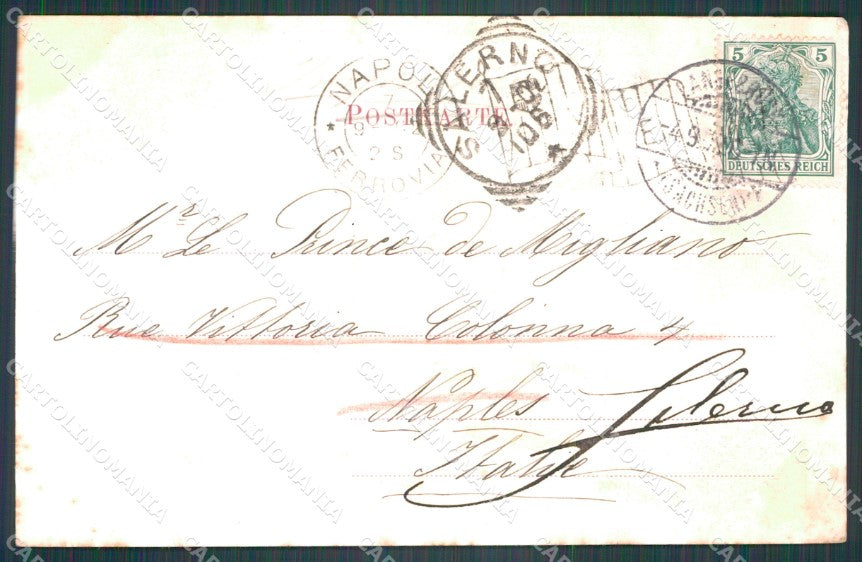 POSTKARTE.
NAPOLI
FERROVIA
SALERNO
5 5
DEUTSCHES REICH
Mr Le Prince de Migliano
Rue Vittoria Colonna 4
Naples Salerno
Italie
CARTOLINOMANIA